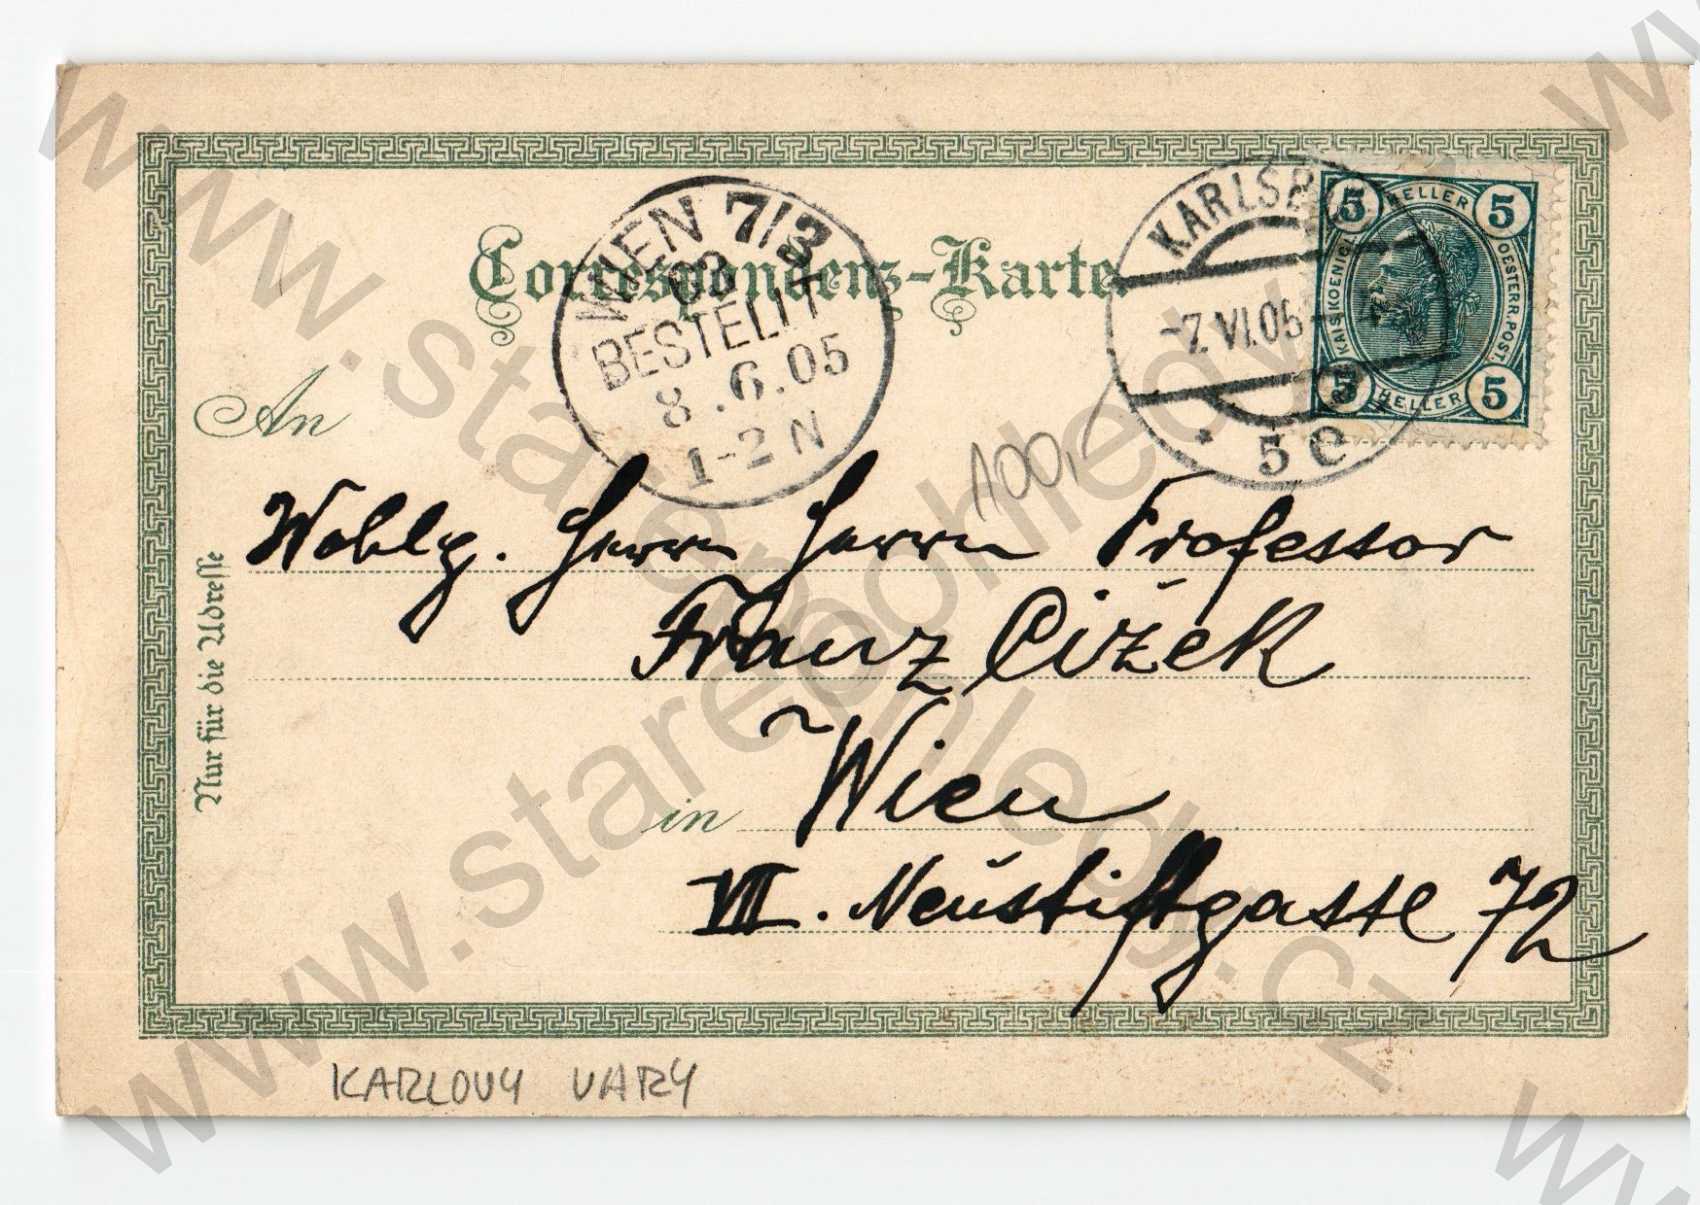 Correspondenz-Karte
WIEN 7/3
BESTELLT
8.6.05
1-2N
KARLSB
-7.VI.05-
* 5 e
5 HELLER 5
KAIS.KOENIGL.
OESTERR.POST.
5 HELLER 5
An
100,-
Wohlg. Herrn Herrn Professor
Franz Cižek
in Wien
VII. Neustiftgasse 72
Nur für die Adresse
KARLOVY VARY
www.starepohledy.cz
www.starepohledy.cz